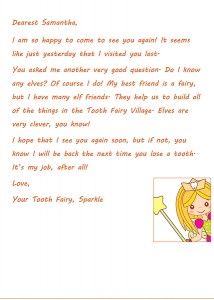 Dearest Samantha,
I am so happy to come to see you again! It seems
like just yesterday that I visited you last.
You asked me another very good question- Do I know
any elves? Of course I do! My best friend is a fairy,
but I have many elf friends. They help us to build all
of the things in the Tooth Fairy Village. Elves are
very clever, you know!
I hope that I see you again soon, but if not, you
know I will be back the next time you lose a tooth-
It's my job, after all!
Love,
Your Tooth Fairy, Sparkle